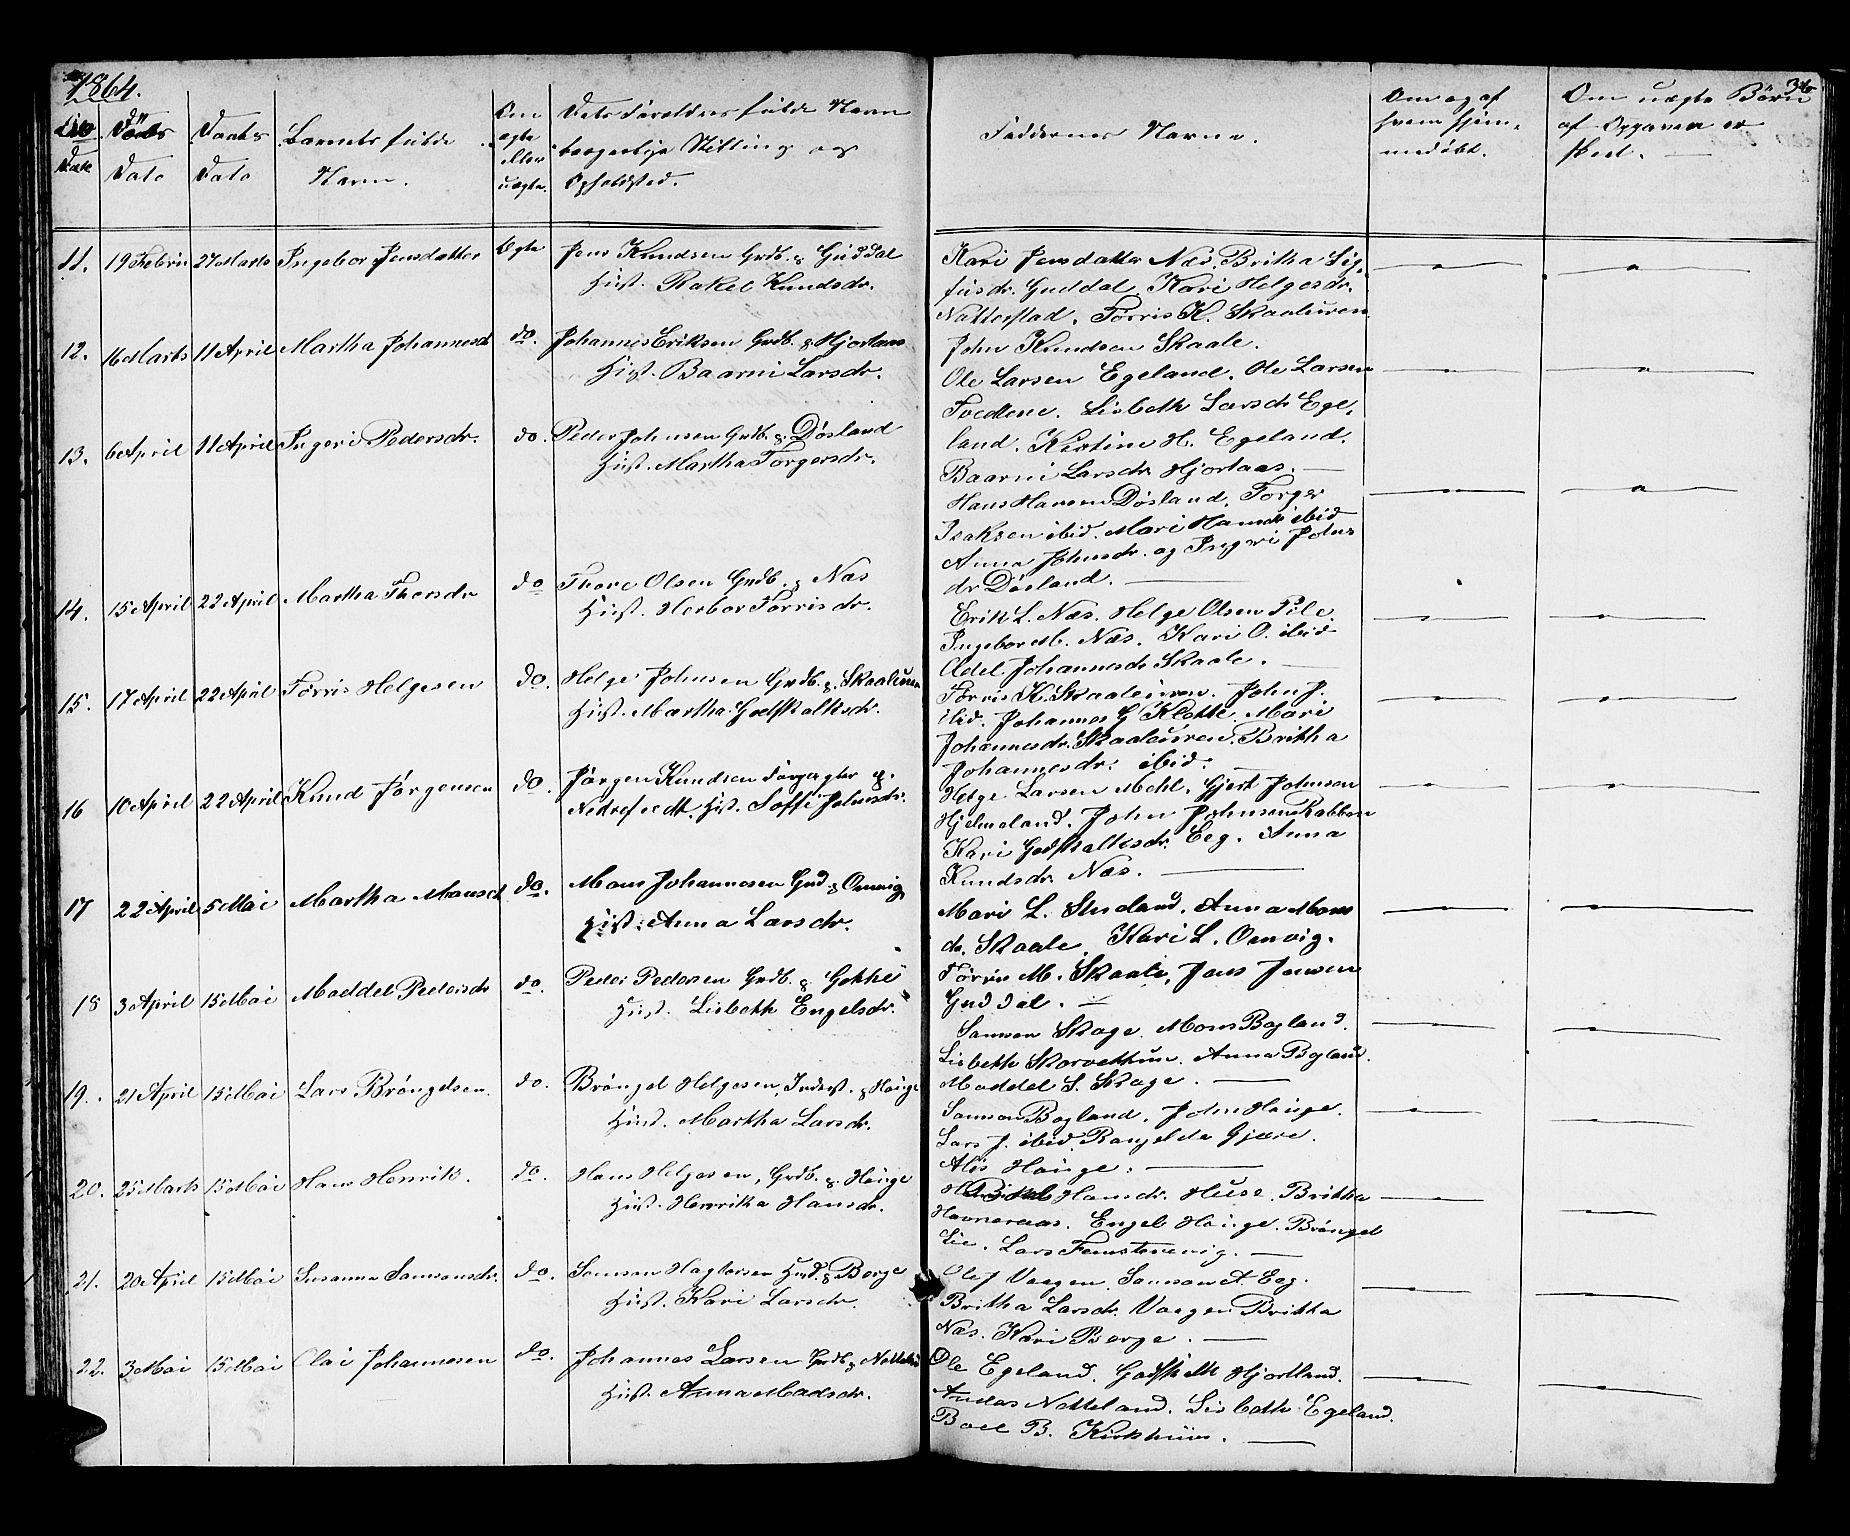 1864.
36
Fødsels Dato
Daabs Dato
Barnets fulde Navn.
Om ægte eller uægte.
Dets Forældres fulde Navn borgerlige Stilling og Opholdsted.
Faddernes Navne.
Om og af hvem hjemmedøbt.
Om uægte Børn af Opgaven er skeet.
11. 19 Febru 27 Marts Ingebor Jensdatter Ægte Jens Knudsen Grdb. & Guddal
Hust. Rakel Knudsdr.
Kari Jensdatter Næs. Britha Sig-
fusdr. Guddal. Kari Helgesdr.
Natterstad. Torris K. Skaaluren
John Knudsen Skaale.
12. 16 Marts 11 April Martha Johannesd do. Johannes Eriksen Grdb. & Hjortaas
Hust. Baarni Larsdr.
Ole Larsen Egeland. Ole Larsen
Tvedtene. Lisbeth Larsdr Ege-
land. Kirstine H. Egeland.
Baarni Larsdr Hjortaas.
13. 6 April 11 April Ingeri Pedersdr. do. Peder Johnsen Grdb. & Døsland
Hust. Martha Torgersdr.
Hans Hansen Døsland. Torger
Isaksen ibid. Mari Hansdr ibid
Anna Johnsdr. og Ingeri Johns
dr Døsland.
14. 15 April 22 April Martha Thorsdr do Thore Olsen Grdb. & Næs
Hust. Herbor Torrisdr.
Erik L. Næs. Helge Olsen Pile.
Ingebor M. Næs. Kari O. ibid
Adel Johannesdr Skaale.
15. 17 April 22 April Torris Helgesen do. Helge Johnsen Grdb. & Skaaluren
Hust. Martha Godskalksdr.
Torris K. Skaaluren. John J.
ibid. Johannes G Klette. Mari
Johannesdr. Skaaleuren. Britha
Johannesdr. ibid.
16 10 April 22 April Knud Jørgensen do. Jørgen Knudsen Forpagter &.
Nedrefvedt. Hust. Soffi Johnsdr.
Helge Larsen Mehl. Gjert Johnson
Hjelmeland. John Johnsen Rabben
Kari Godskalksdr. Eeg. Anna
Knudsdr. Næs.
17 22 April 5 Mai Martha Monsd do. Mons Johannesen Grd & Omvig
Hust. Anna Larsdr.
Mari L. Studand. Anna Mons
dr. Skaale. Kari L. Omvig.
Torris M. Skaale, Jens Jensen
Guddal.
18 3 April 15 Mai Maddel Pedersdr do. Peder Pedersen Grdb. & Gekhe
Hust. Lisbeth Engelsdr.
Samson Skage. Mons Bogland.
Lisbeth Skorvethun. Anna Bogland
Maddel S. Skage.
19. 21 April 15 Mai Lars Brøngelsen. do. Brøngel Helgesen, Inderst. & Hauge
Hust. Martha Larsdr.
Samson Bogland. John Hauge.
Lars J. ibid. Rangelda Gjære.
Alis Hauge.
20. 25 Marts 15 Mai Hans Henrik. do. Hans Helgesen, Grdb. & Hauge
Hust. Henrika Hansdr.
Hansdr. Huse. Britha
Havneraas. Engel Hauge. Brøngel
Lie. Lars Femstenevig.
21. 20 April 15 Mai Susanna Samsonsdr. do. Samson Hagtorsen Husd. & Borge
Hust. Kari Larsdr.
Ole J Vaagen. Samson A. Eeg.
Britha Larsdr. Vaagen Britha
Næs. Kari Borge.
22. 3 Mai 15 Mai Olai Johannesen do. Johannes Larsen Grdb &
Hust. Anna Madsdr.
Ole Egeland. Godskalk Hjortland.
Andas Netteland. Lisbeth Egeland.
Boel B. Kirkhuus.